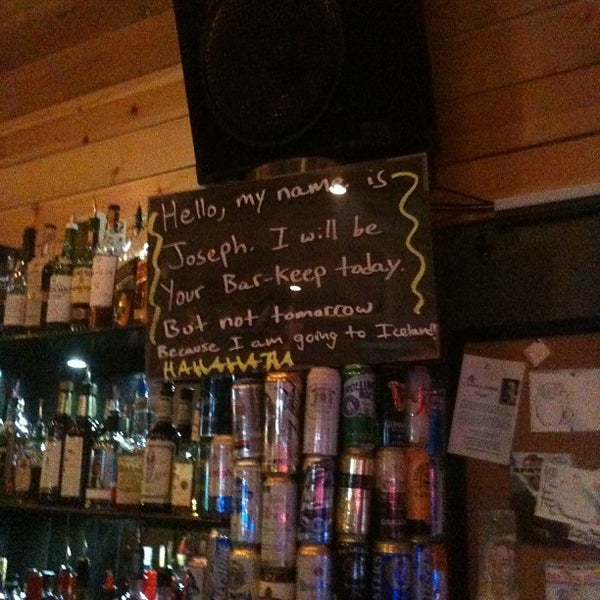 Hello, my name is
Joseph. I will be
Your Bar-Keep today.
But not tomorrow
Because I am going to Iceland!
HAHAHAHA